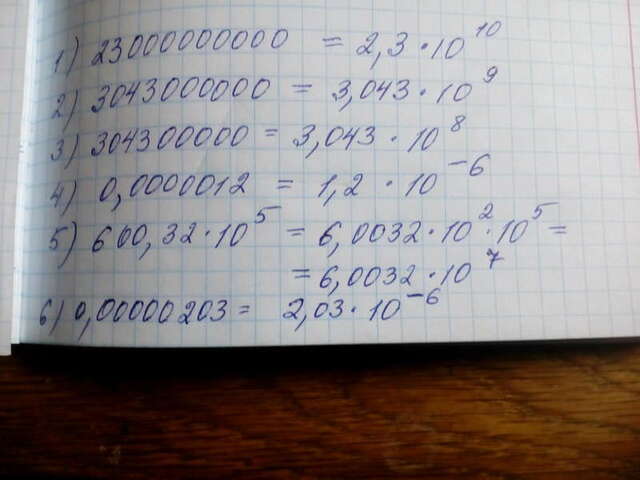 1) 23000000000 = 2,3 · 10^10
2) 3043000000 = 3,043 · 10^9
3) 304300000 = 3,043 · 10^8
4) 0,0000012 = 1,2 · 10^-6
5) 600,32 · 10^5 = 6,0032 · 10^2 · 10^5 =
= 6,0032 · 10^7
6) 0,00000203 = 2,03 · 10^-6